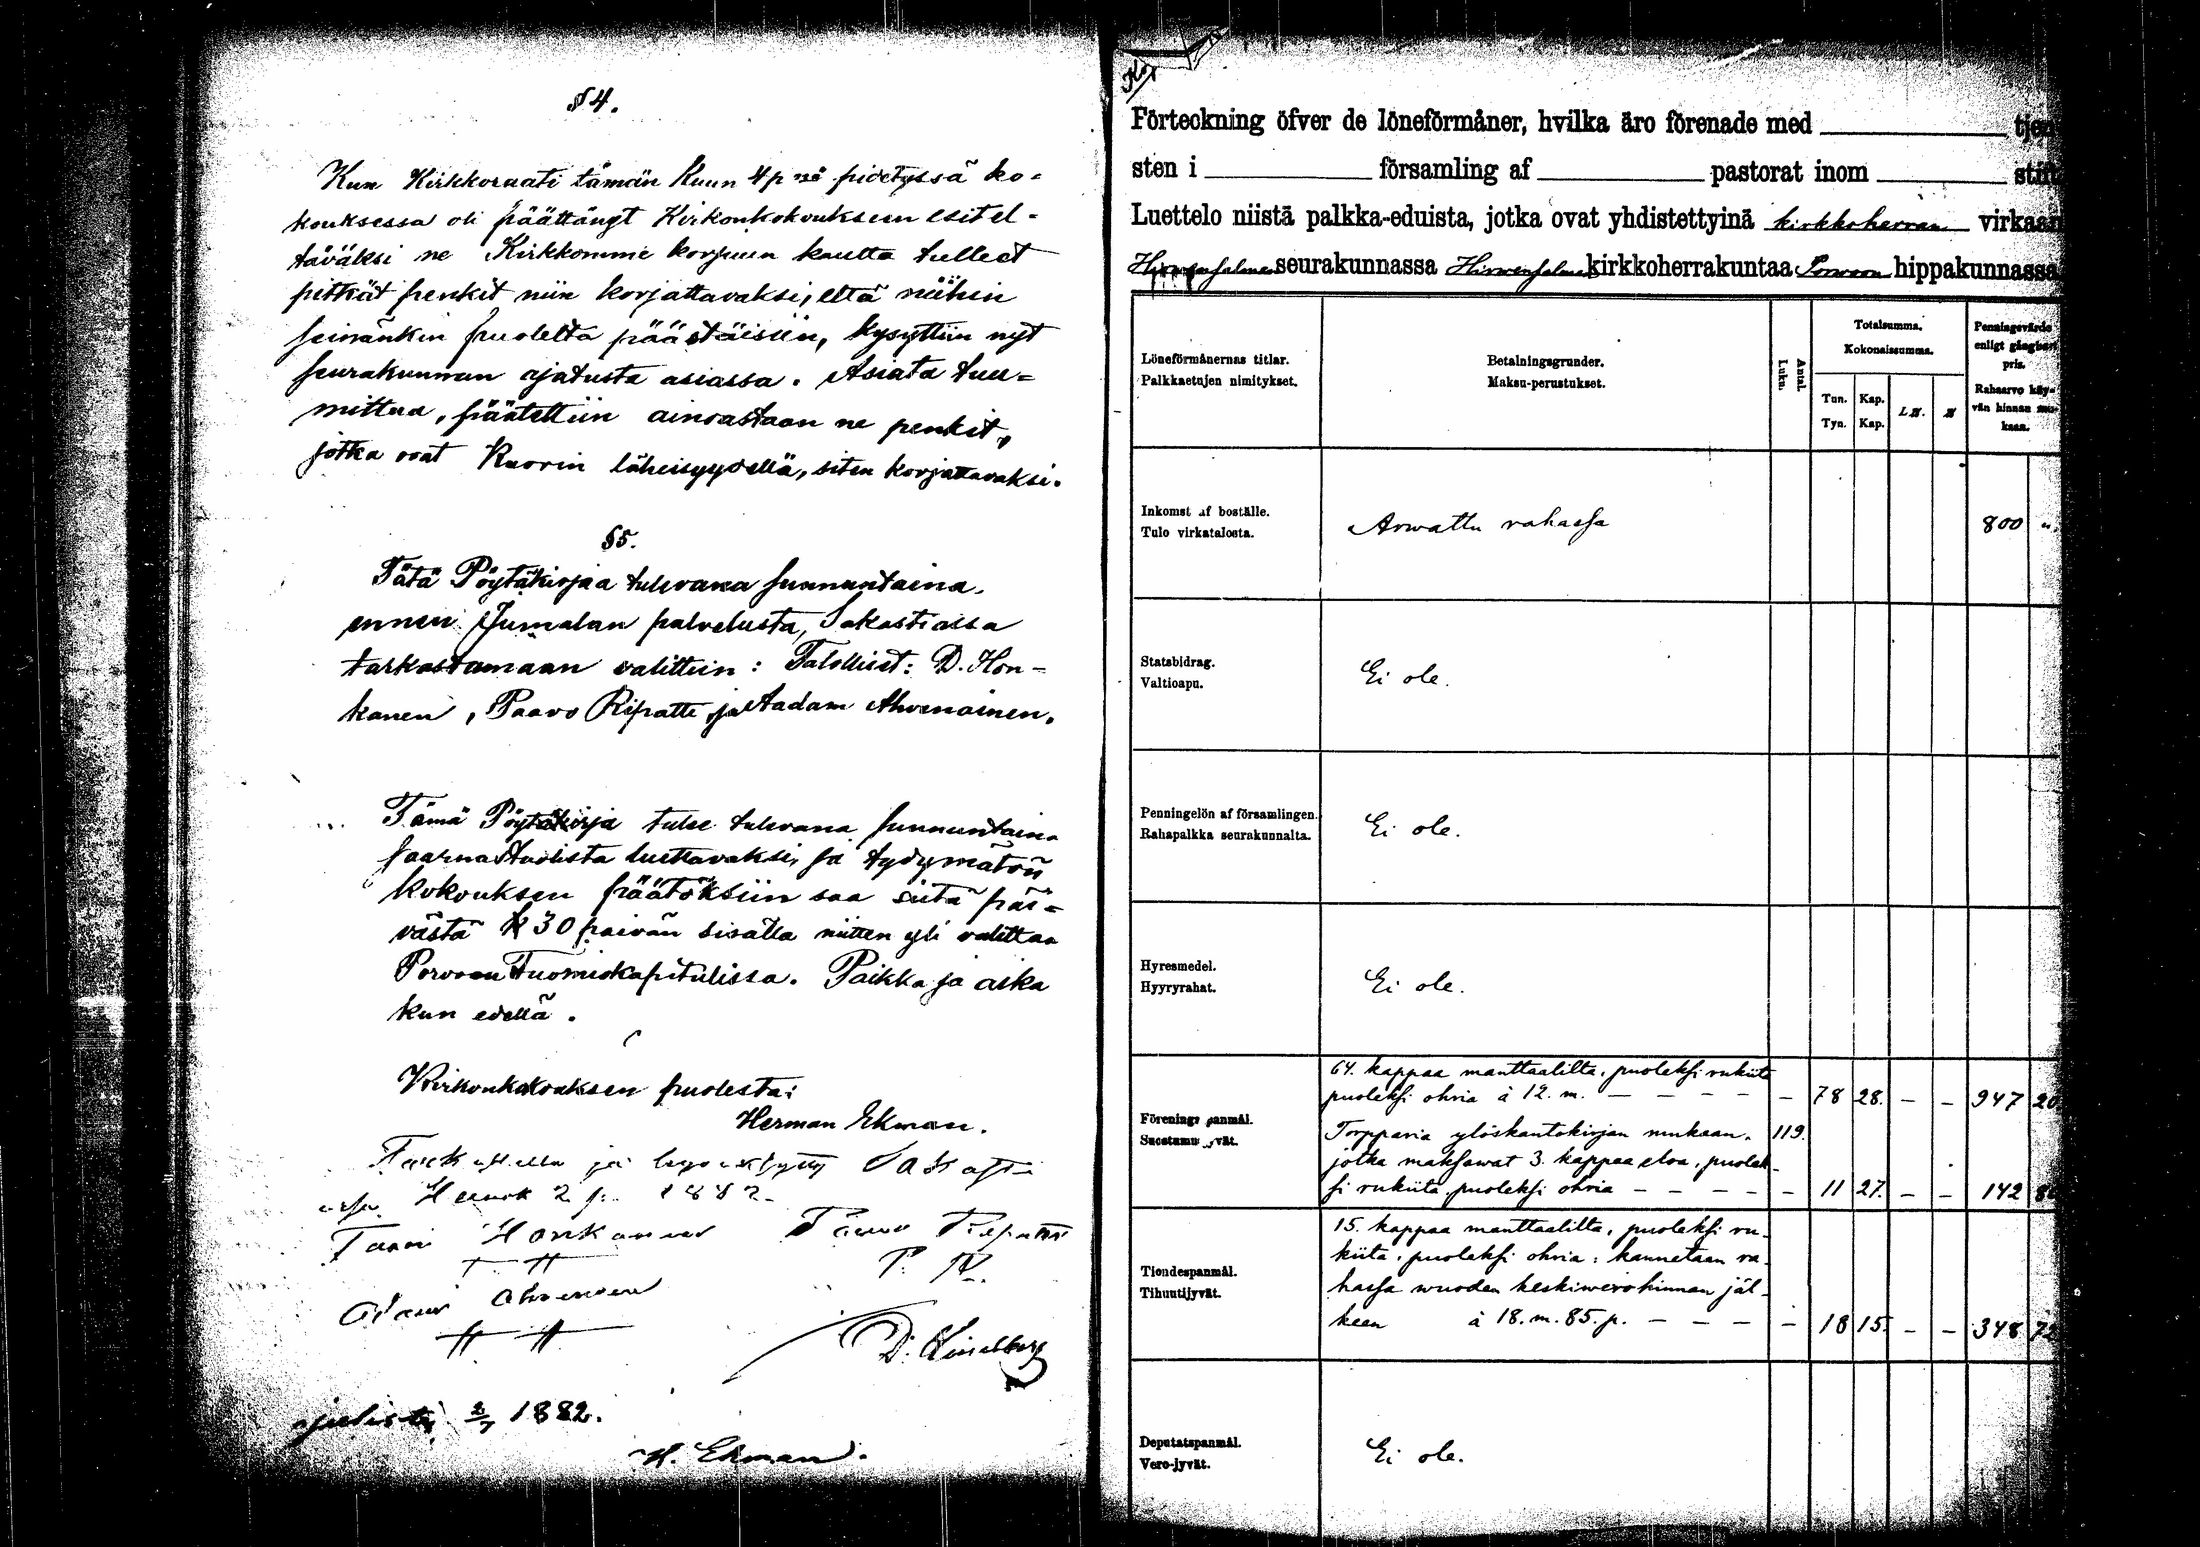 § 4.
Kun Kirkkoraati tämän Kuun 4 p nä pidetyssä ko-
kouksessa oli päättänyt Kirkonkokouksen esitel-
täväksi ne Kirkkomme korjuun kautta tulleet
pitkät penkit niin korjattavaksi, että niihin
seinänkin puolelta päästäisiin, kysyttiin nyt
seurakunnan ajatusta asiassa. Asiata tuu-
mittua, päätettiin ainoastaan ne penkit,
jotka ovat Kuorin läheisyydellä, siten korjattavaksi.
§ 5.
Tätä Pöytäkirjaa tulevana sunnuntaina
ennen Jumalan palvelusta, Sakastiassa
tarkastamaan valittiin: Talolliset: D. Hon-
kanen, Paavo Ripatti ja Aadam Ahvenainen.
Tämä Pöytäkirja tulee tulevana sunnuntaina
saarnastuolista luettavaksi, ja tydymätön
kokouksen päätöksiin saa siitä päi-
västä 30 päivän sisällä niitten yli valittaa
Porvoon Tuomiokapitulissa. Paikka ja aika
kun edellä.
Kirkonkokouksen puolesta:
Herman Ekman.
ja
2 p. 1882
Taavi Honkanen Paavo Ripatti
P. R.
Adam Ahvenainen
D.
julisti 2/7 1882.
H. Ekman.
Förteckning öfver de löneförmåner, hvilka äro förenade med tjen
sten i församling af pastorat inom stift
Luettelo niistä palkka-eduista, jotka ovat yhdistettyinä kirkkoherran virkaan
Hirvensalmen seurakunnassa Hirvensalmen kirkkoherrakuntaa Porvoon hippakunnassa
Löneförmånernas titlar.
Palkkaetujen nimitykset.
Betalningsgrunder.
Maksu-perustukset.
Antal.
Luku.
Totalsumma.
Kokonaissumma.
Tun. Kap.
Tyn. Kap.
L℔. ℔
Penningevärde
enligt gångbart
pris.
Rahaarvo käy-
vän hinnan mu-
kaan.
Inkomst af boställe.
Tulo virkatalosta.
Arwattu rahassa 800 „
Statsbidrag.
Valtioapu.
Ei ole.
Penningelön af församlingen.
Rahapalkka seurakunnalta.
Ei ole.
Hyresmedel.
Hyyryrahat.
Ei ole.
Förenings panmål.
Suostumus jyvät.
64. kappaa manttaalilta, puoleksi rukiita
puoleksi ohria à 12. m. — — — — — 78 28. — — 947 20
Torpparia ylöskantokirjan mukaan. 119.
jotka maksawat 3. kappaa eloa, puolek-
si rukiita, puoleksi ohria — — — — — 11 27. — — 142 80
Tiondespanmål.
Tihuntijyvät.
15. kappaa manttaalilta, puoleksi ru-
kiita, puoleksi ohria; kannetaan ra-
hassa wuoden keskiwerohinnan jäl-
keen à 18. m. 85. p. — — — — 18 15. — — 348 72
Deputatspanmål.
Vero-jyvät.
Ei ole.